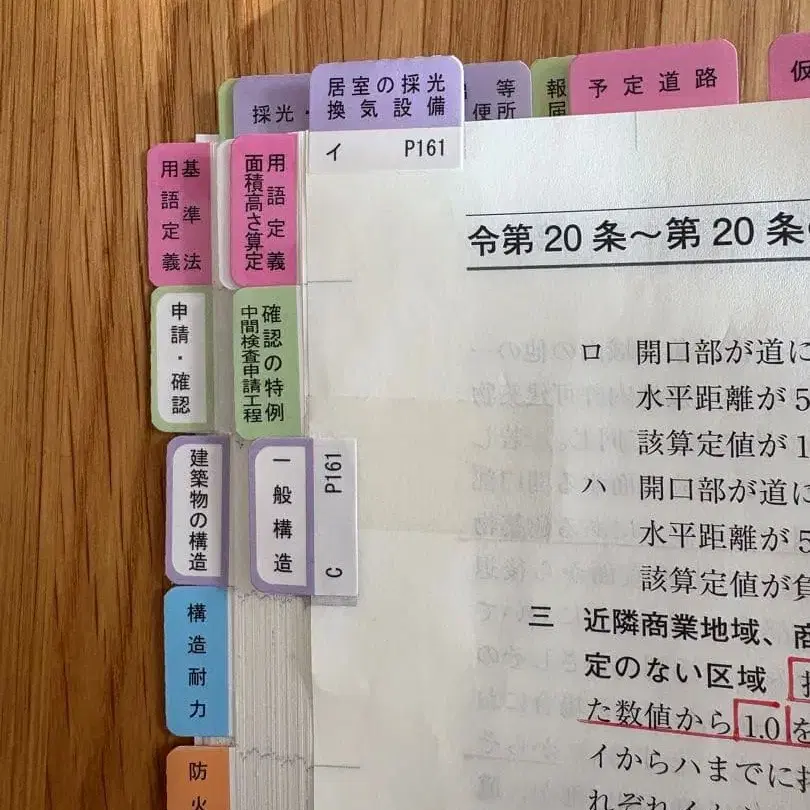 採光・
居室の採光
換気設備
等
便所
報
届
予定道路
仮
イ P161
基準法
用語定義
用語定義
面積高さ算定
申請・確認
確認の特例
中間検査申請工程
建築物の構造
一般構造
P161
C
構造耐力
防火
令第20条～第20条
ロ 開口部が道に
水平距離が5
該算定値が1
ハ 開口部が道に
水平距離が5
該算定値が負
三 近隣商業地域、商
定のない区域
た数値から1.0を
イからハまでに
れぞれイ